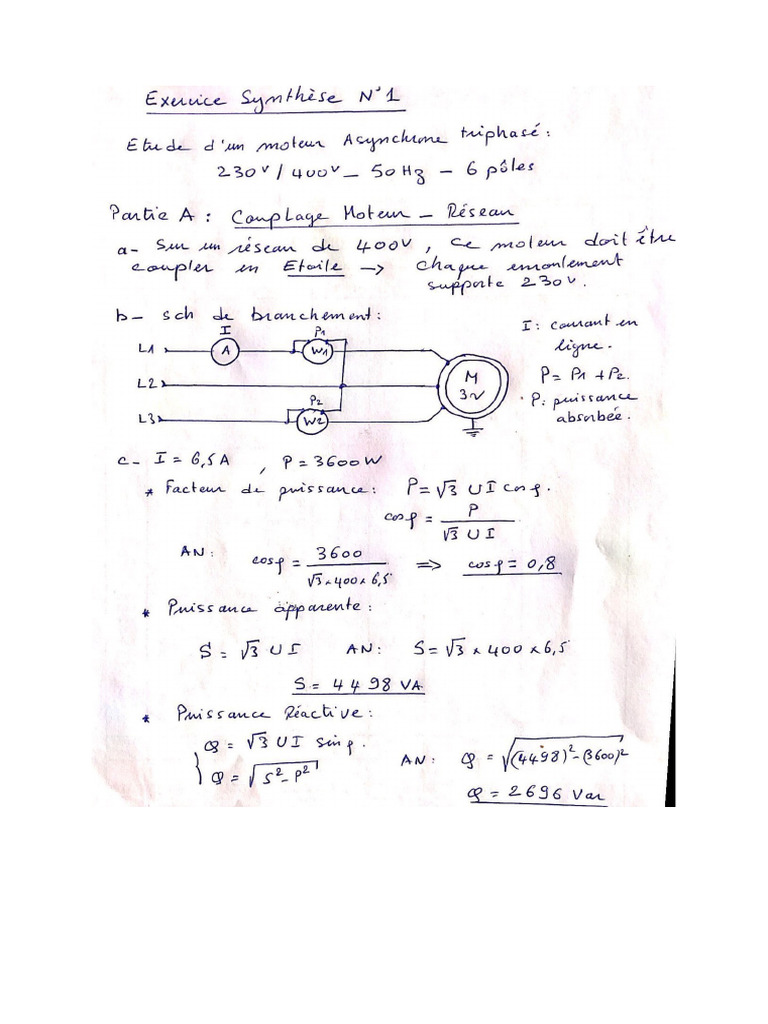 Exercice Synthèse N°1
Etude d'un moteur Asynchrone triphasé :
230V / 400V – 50 Hz – 6 pôles
Partie A : Couplage Moteur – Réseau
a- Sur un réseau de 400V, ce moteur doit être
coupler en Etoile → chaque enroulement
supporte 230V.
b- sch de branchement :
I
P1
L1
A
W1
L2
M
3~
P2
L3
W2
I : courant en
ligne.
P = P1 + P2.
P : puissance
absorbée.
c- I = 6,5A , P = 3600W
* Facteur de puissance : P = √3 U I cosφ.
cosφ = P / √3 U I
AN : cosφ = 3600 / √3 × 400 × 6,5 => cosφ = 0,8
* Puissance apparente :
S = √3 U I AN : S = √3 × 400 × 6,5
S = 4498 VA
* Puissance Réactive :
Q = √3 U I sinφ.
Q = √S² – P²
AN : Q = √(4498)² – (3600)²
Q = 2696 Var